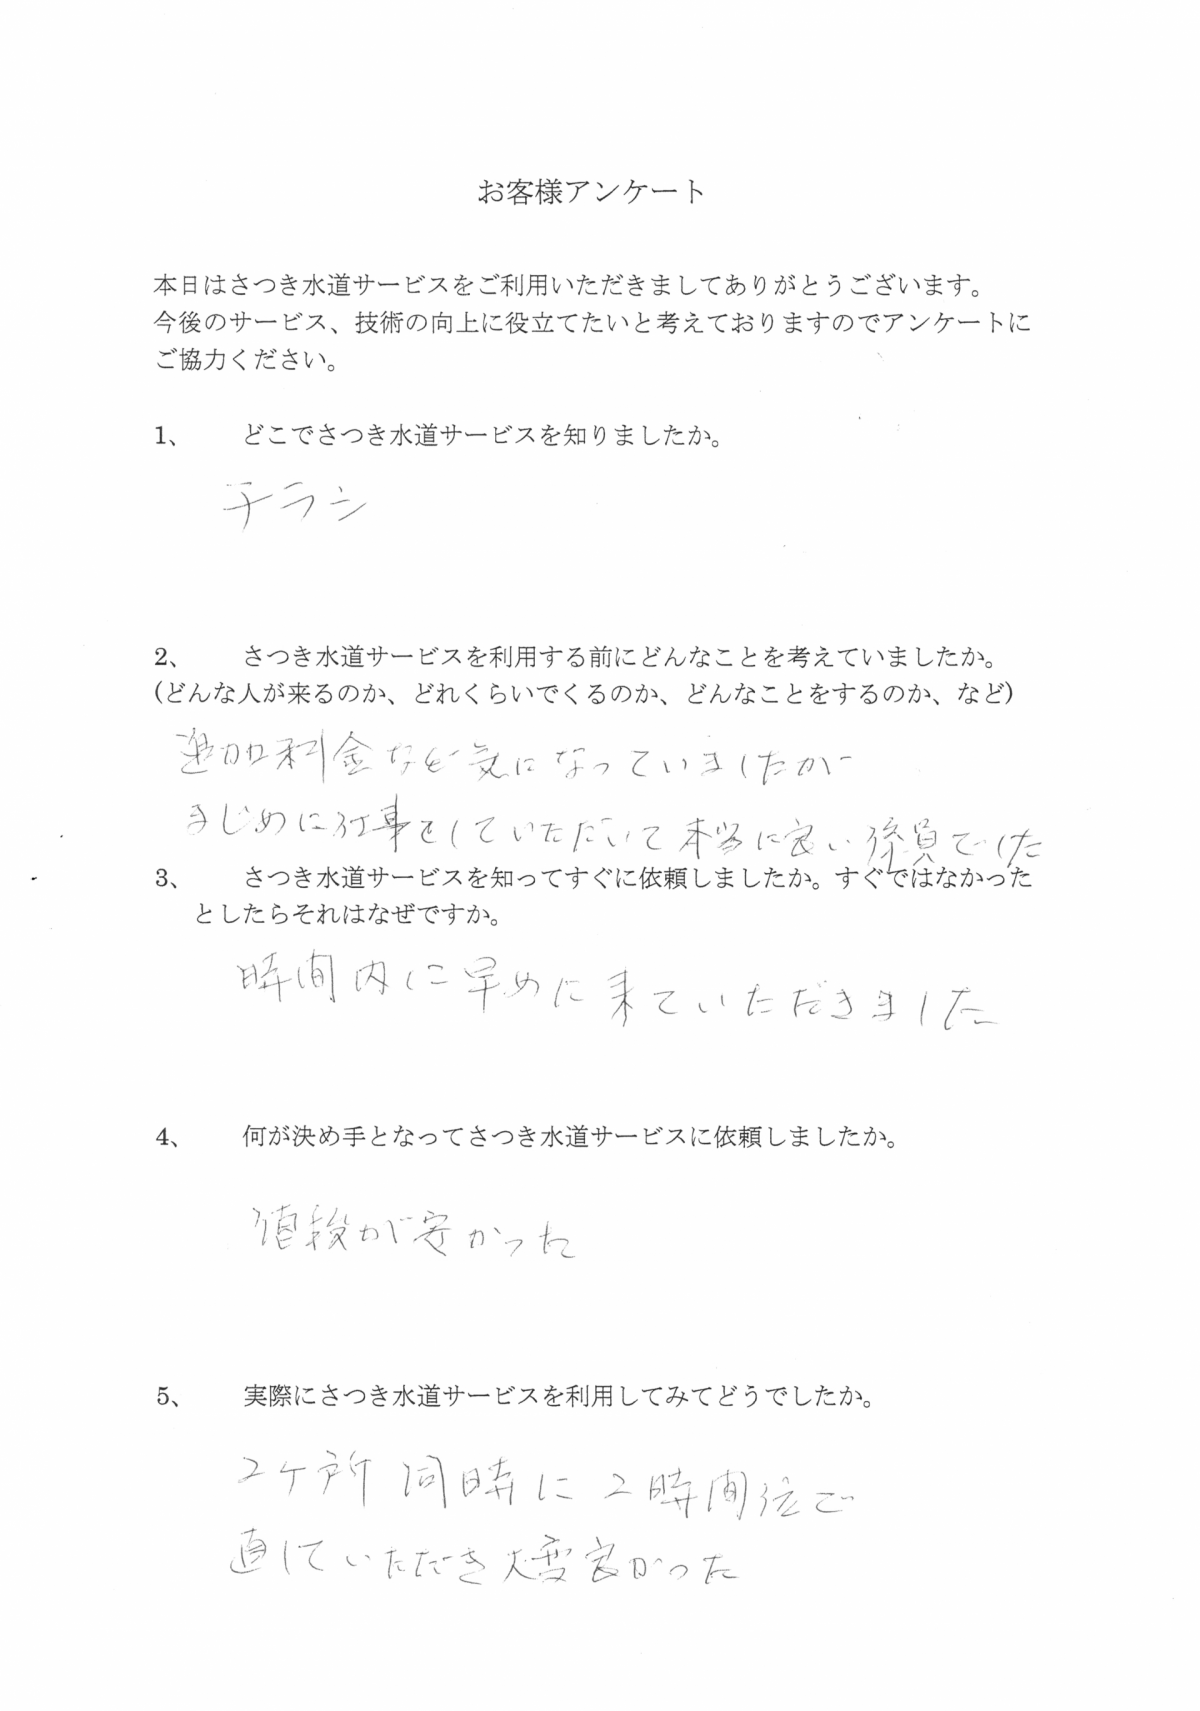 お客様アンケート
本日はさつき水道サービスをご利用いただきましてありがとうございます。
今後のサービス、技術の向上に役立てたいと考えておりますのでアンケートに
ご協力ください。
1、 どこでさつき水道サービスを知りましたか。
チラシ
2、 さつき水道サービスを利用する前にどんなことを考えていましたか。
(どんな人が来るのか、どれくらいでくるのか、どんなことをするのか、など)
追加料金など気になっていましたが
まじめに仕事をしていただいて本当に良い係員でした
3、 さつき水道サービスを知ってすぐに依頼しましたか。すぐではなかった
としたらそれはなぜですか。
時間内に早めに来ていただきました
4、 何が決め手となってさつき水道サービスに依頼しましたか。
値段が安かった
5、 実際にさつき水道サービスを利用してみてどうでしたか。
2ヶ所同時に2時間位で
直していただき大変良かった